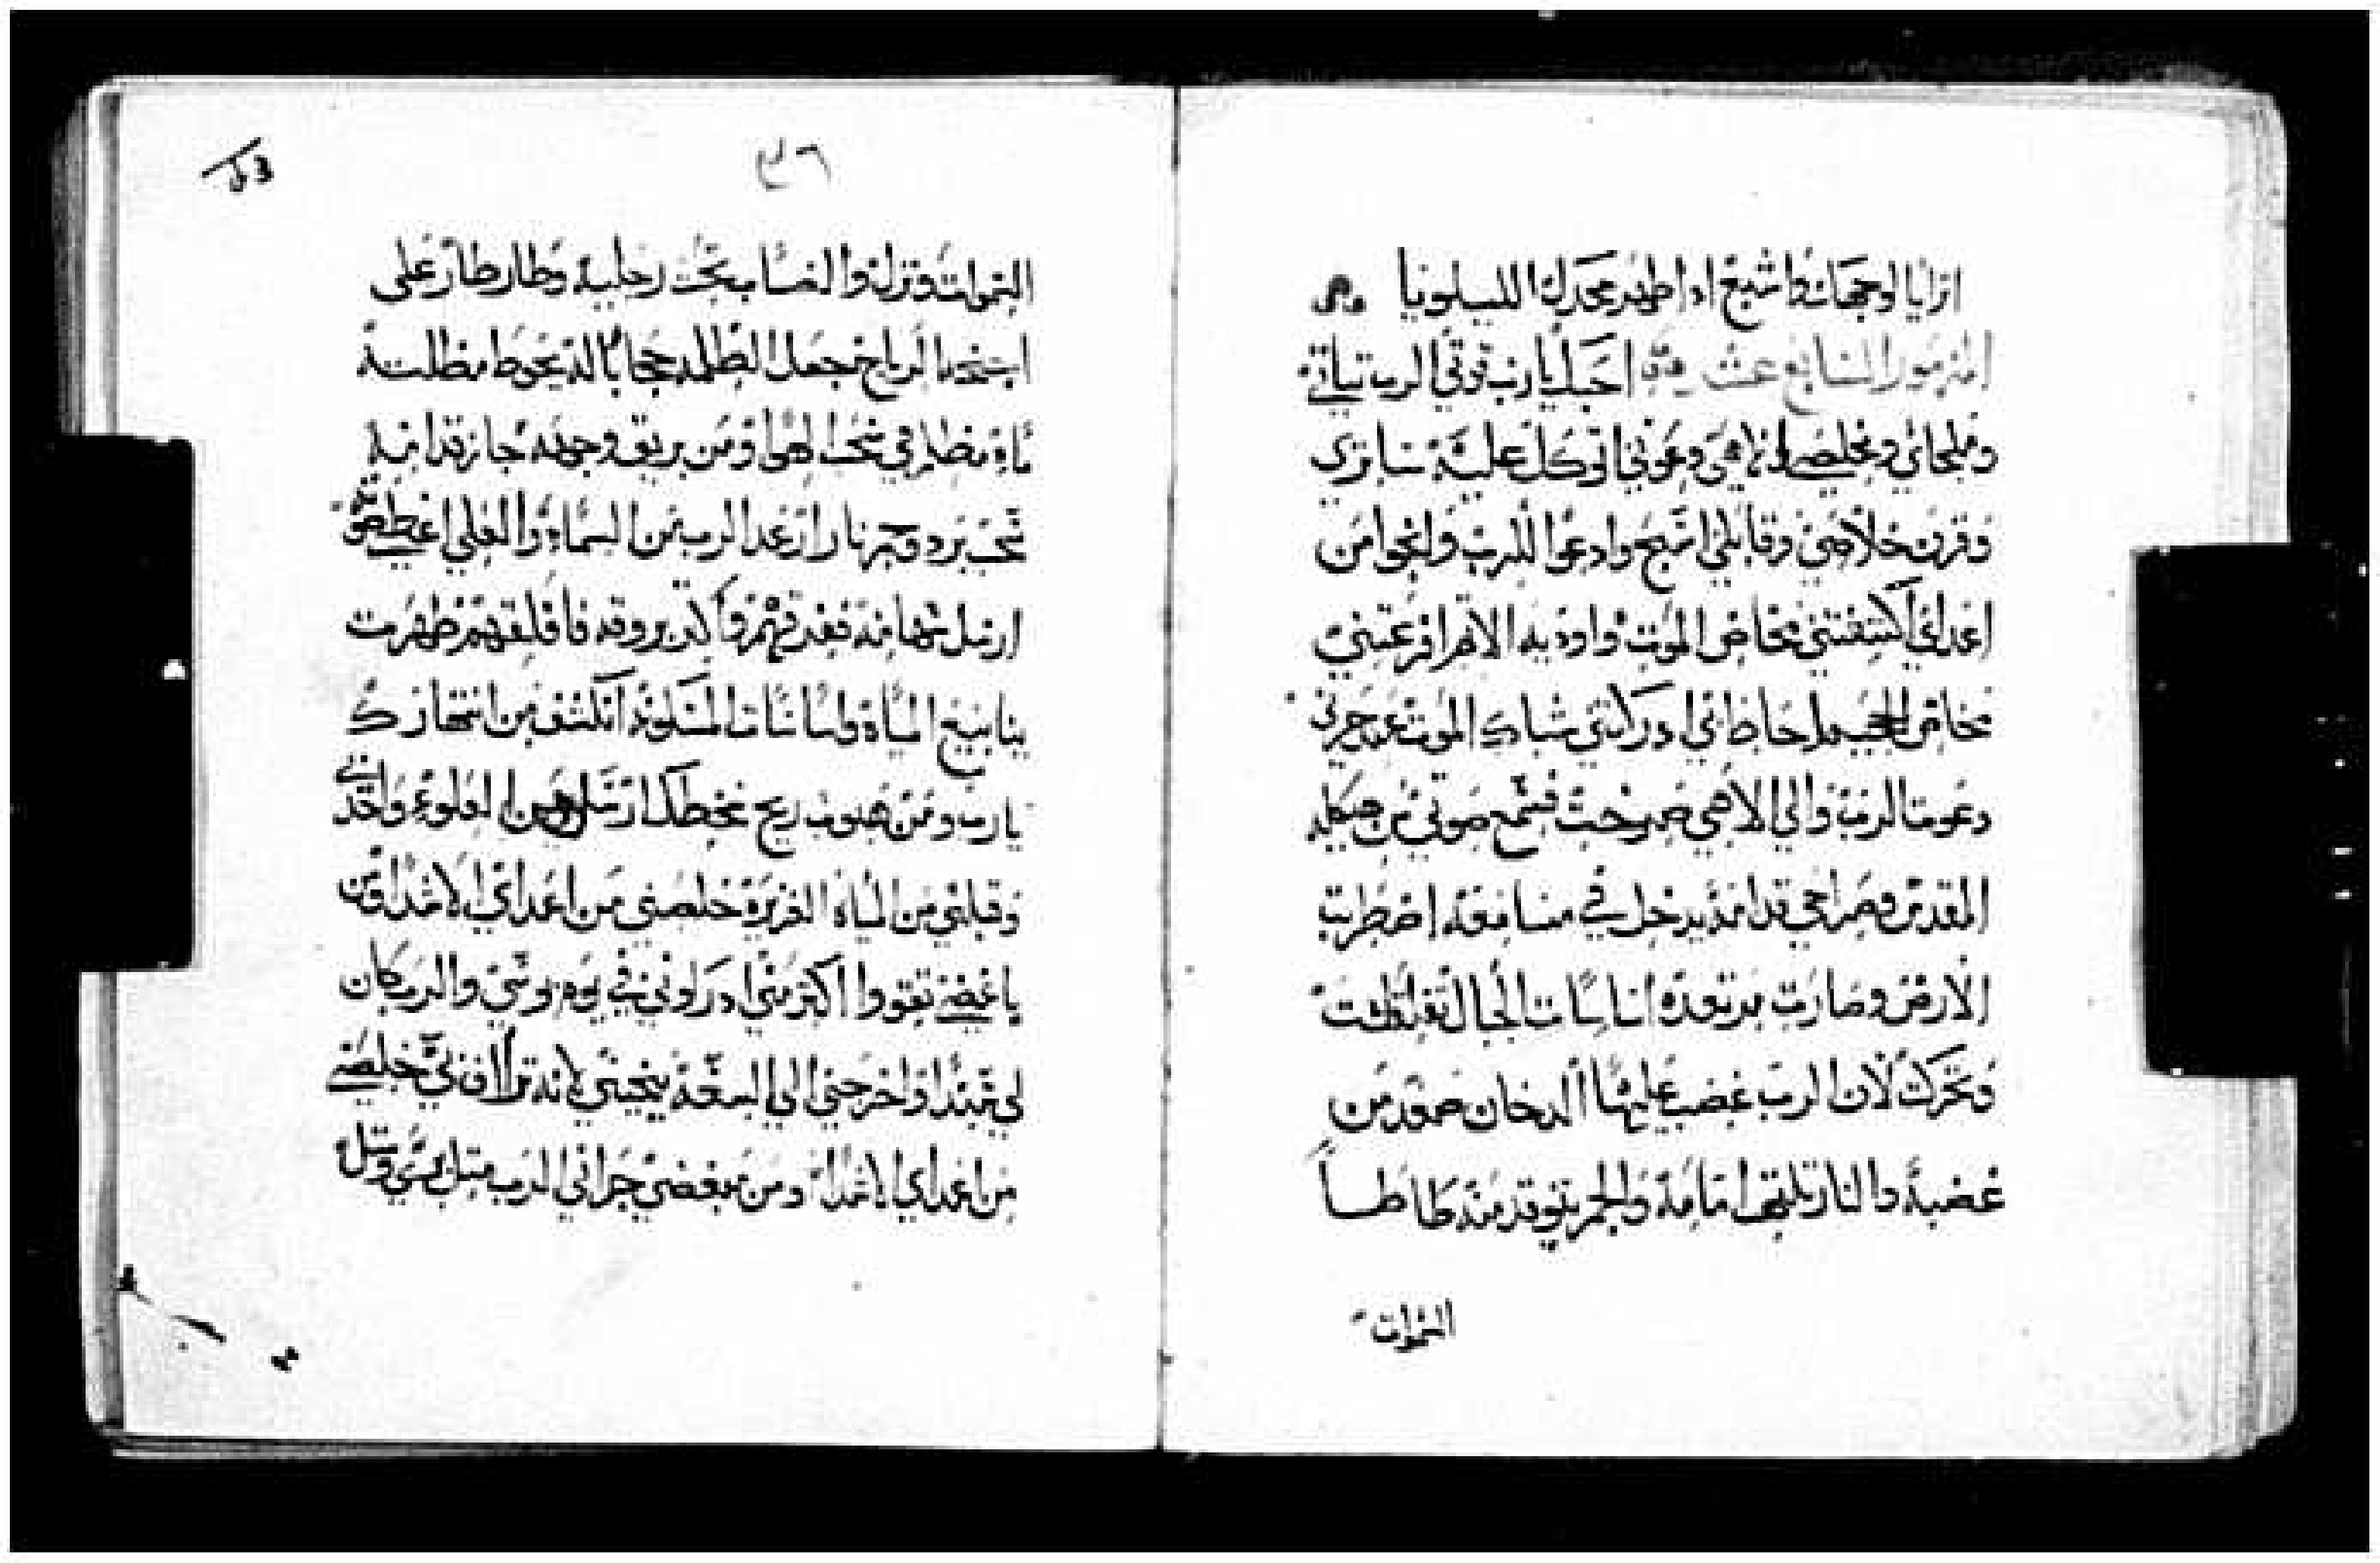 ارايا لوجهك واشبع اذا ظهر مجدك الليلويا
المزمور السابع عشر احبك يارب قوتي الرب ثباتي
وملجاي ومخلصي الاهي وعوني اتوكل عليه ساتري
وقرن خلاصي وقابلني اسبح وادعوا للرب وانجوا من
اعداي اكتنفتني مخاض الموت واوديه الاثم افزعتني
مخاض الجحيم احاط بي ادركتني شباك الموت عند حزني
دعوت الرب والي الاهي صرخت فسمع صوتي من هيكله
المقدس وصراخي قدامه يدخل في مسامعه اضطربت
الارض وصارت مرتعده اساسات الجبال تقلقلت
وتحركت لان الرب غضب عليها الدخان صعد من
غضبه والنار تلتهب امامه والجمر يتوقد منه طاطا
السموات
٣٦
53
السموات ونزل والضباب تحت رجليه وطار طار على
اجنحة الرياح جعل الظلمه حجابا له تحوط مظلته
ماء مظلم في سحب الهوا ومن بريق وجهه جازت قدامه
سحب برد وجمر نار ارعد الرب من السماء والعلي اعطى صوته
ارسل سهامه ففرقهم واكثر بروقه فاقلقهم ظهرت
ينابيع المياه واساسات المسكونه انكشف من انتهارك
يارب ومن هبوب ريح سخطك ارسل من العلو واخذني
وقبلني من المياه الغزيره خلصني من اعداي الاشدا ومن
باغضي تقووا اكثر مني ادركوني في يوم بوسي والرب كان
لي سندا واخرجني الي السعه ينجيني لانه خلصني
من اعداي الاشدا ومن مبغضي جزاني الرب مثل بري ومثل